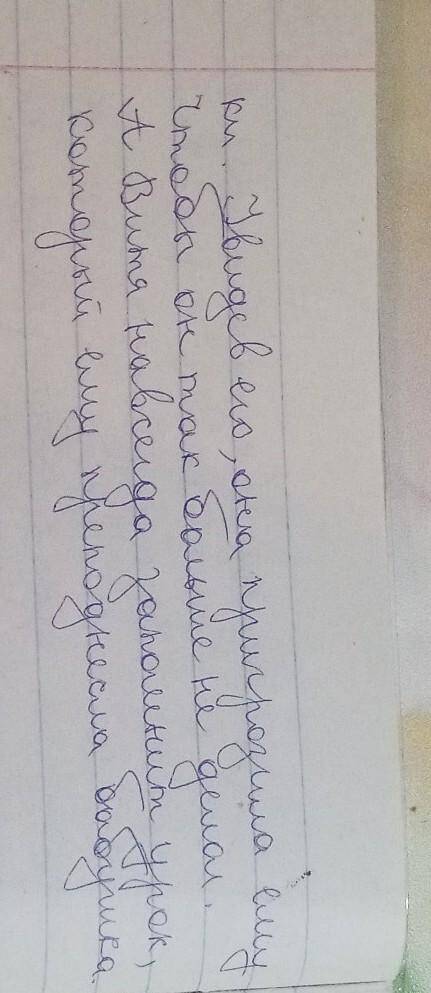 ки. Увидев его, она пригрозила ему
чтобы он так больше не делал.
А Витя навсегда запомнит урок,
который ему преподнесла бабушка.